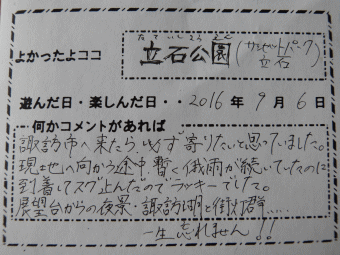 よかったよココ
たていしこうえん
立石公園(サンセットパーク立石)
遊んだ日・楽しんだ日・・2016年9月6日
何かコメントがあれば
諏訪市へ来たら、必ず寄りたいと思っていました。
現地へ向かう途中、暫く俄雨が続いていたのに
到着してスグ止んだのでラッキーでした。
展望台からの夜景・諏訪湖と街灯群....
一生忘れません!!